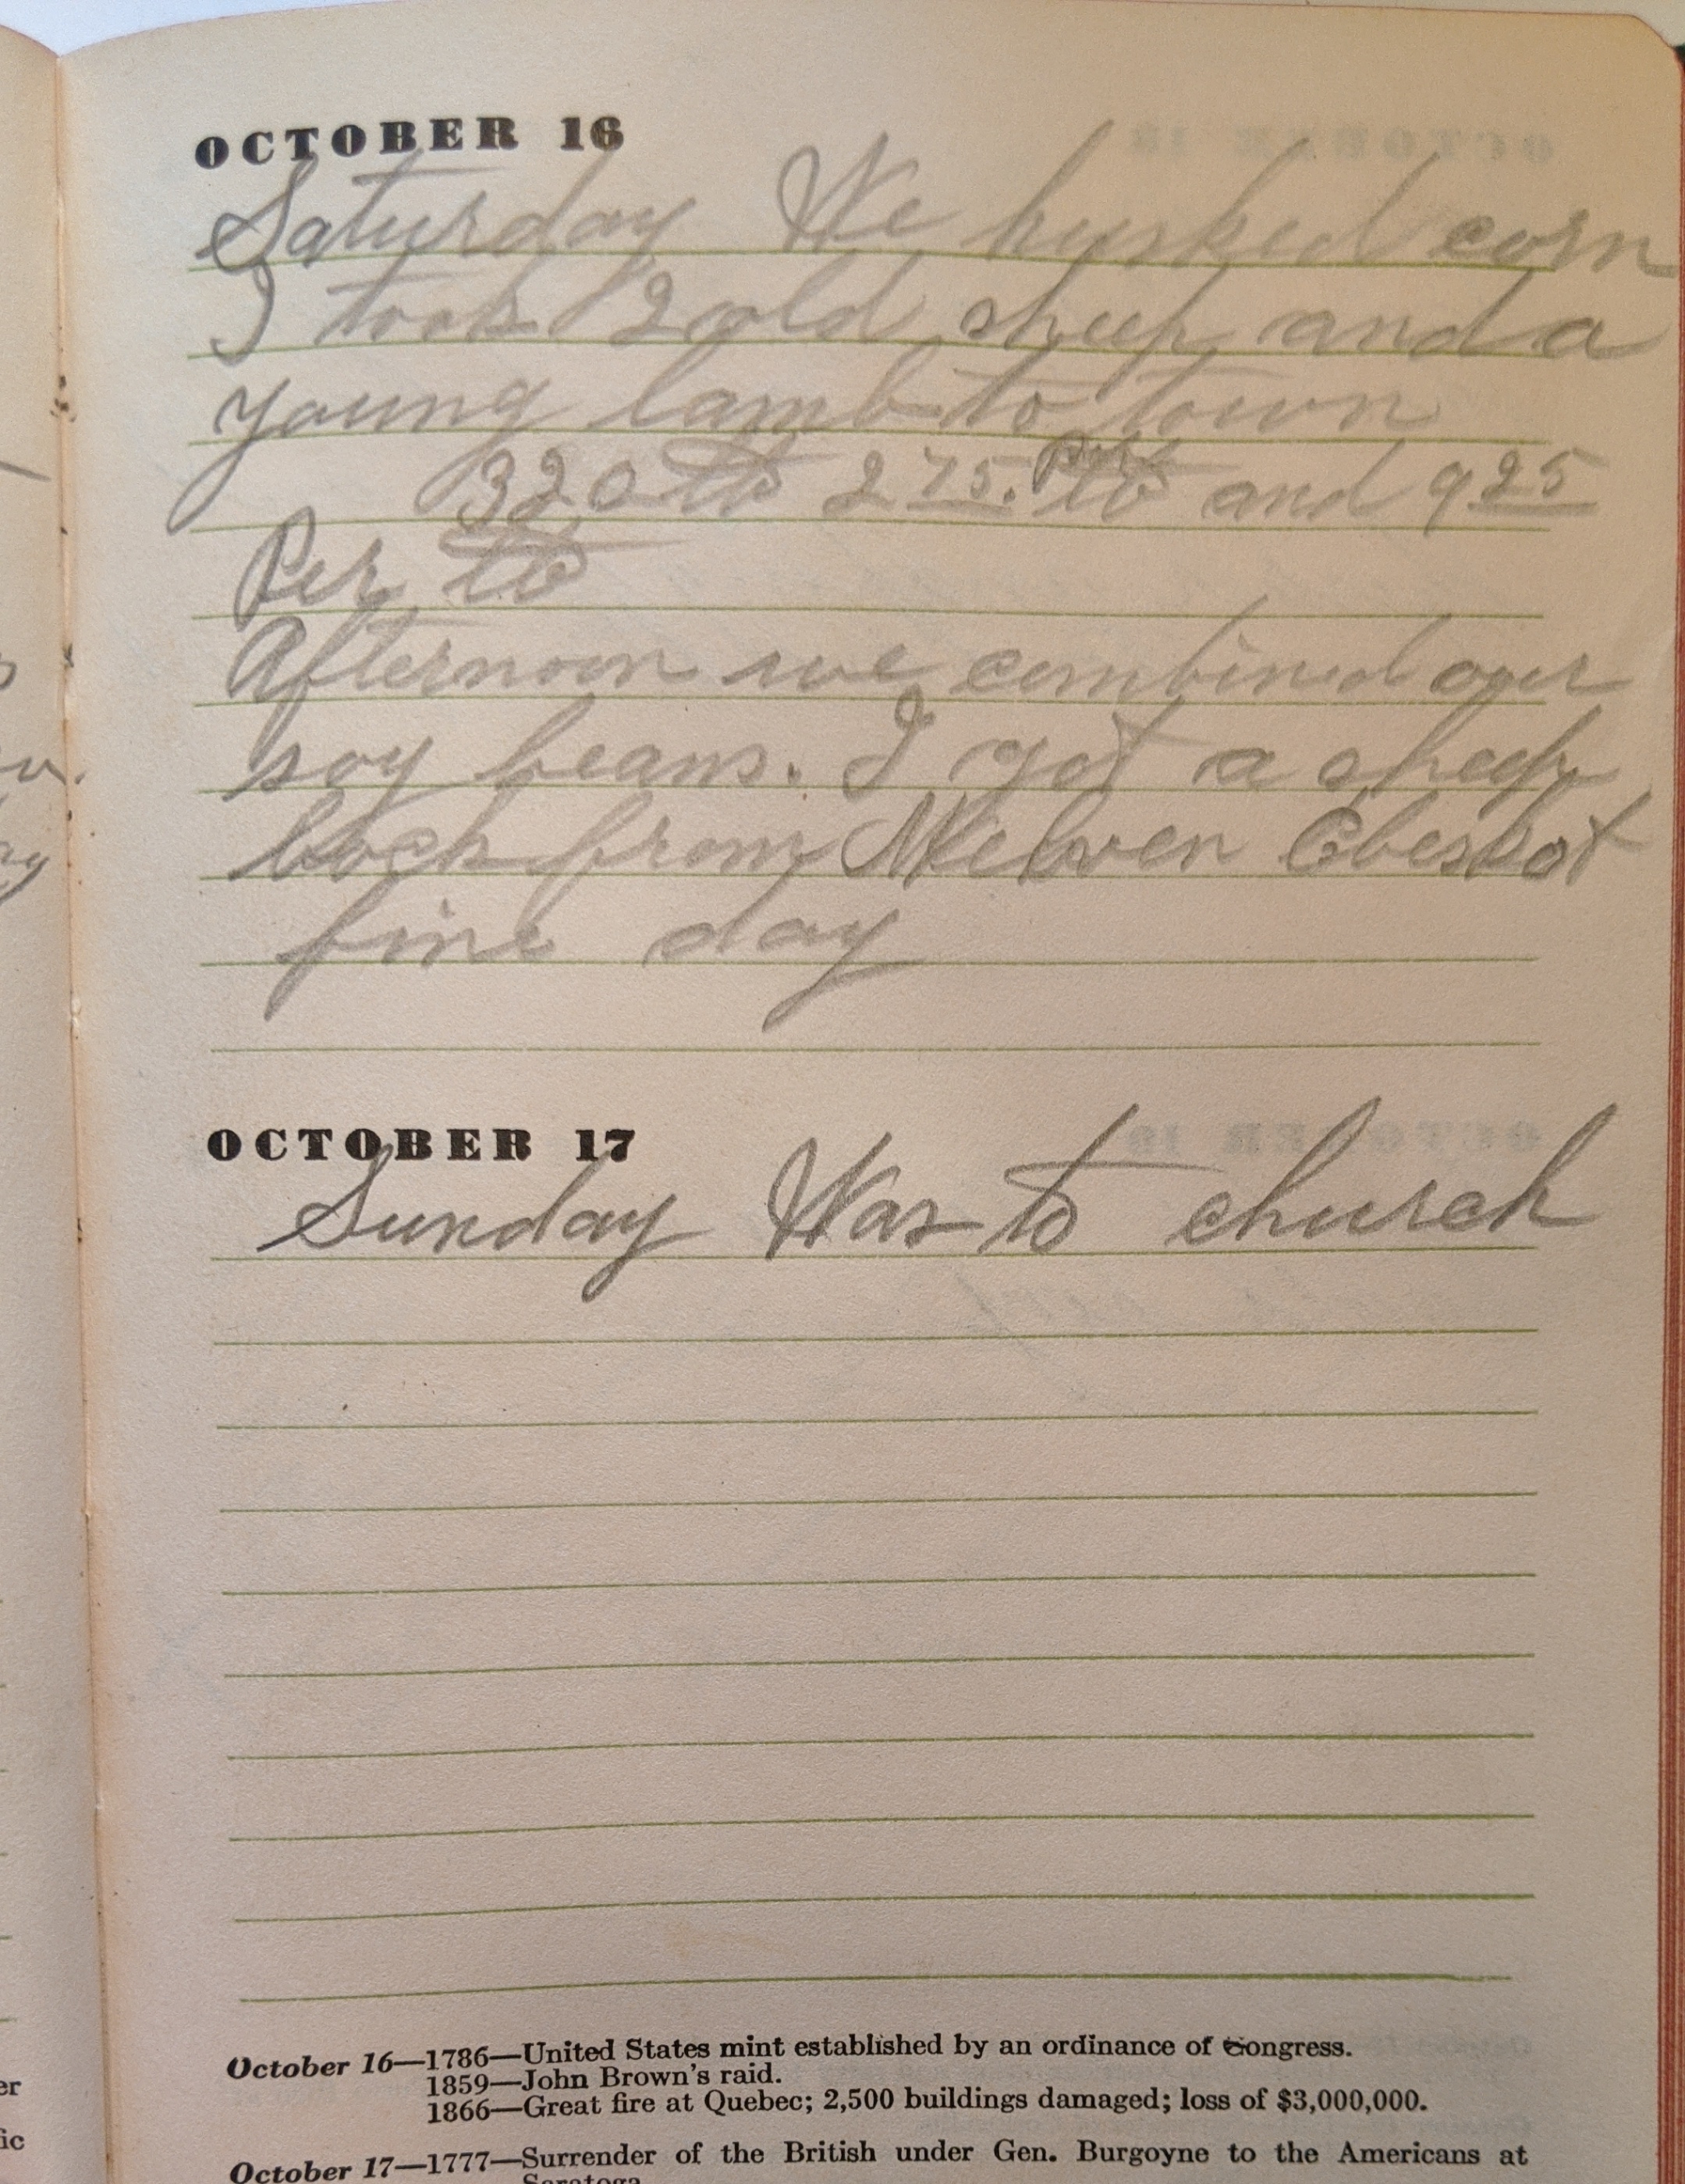 OCTOBER 16
Saturday We husked corn
I took 2 old sheep and a
young lamb to town
320 lb 2 75. Per lb and 9 25
Per lb
Afternoon we combined our
soy beans. I got a sheep
bock from Melven Ebersbot
fine day
OCTOBER 17
Sunday Was to church
October 16—1786—United States mint established by an ordinance of Congress.
1859—John Brown's raid.
1866—Great fire at Quebec; 2,500 buildings damaged; loss of $3,000,000.
October 17—1777—Surrender of the British under Gen. Burgoyne to the Americans at
Saratoga.